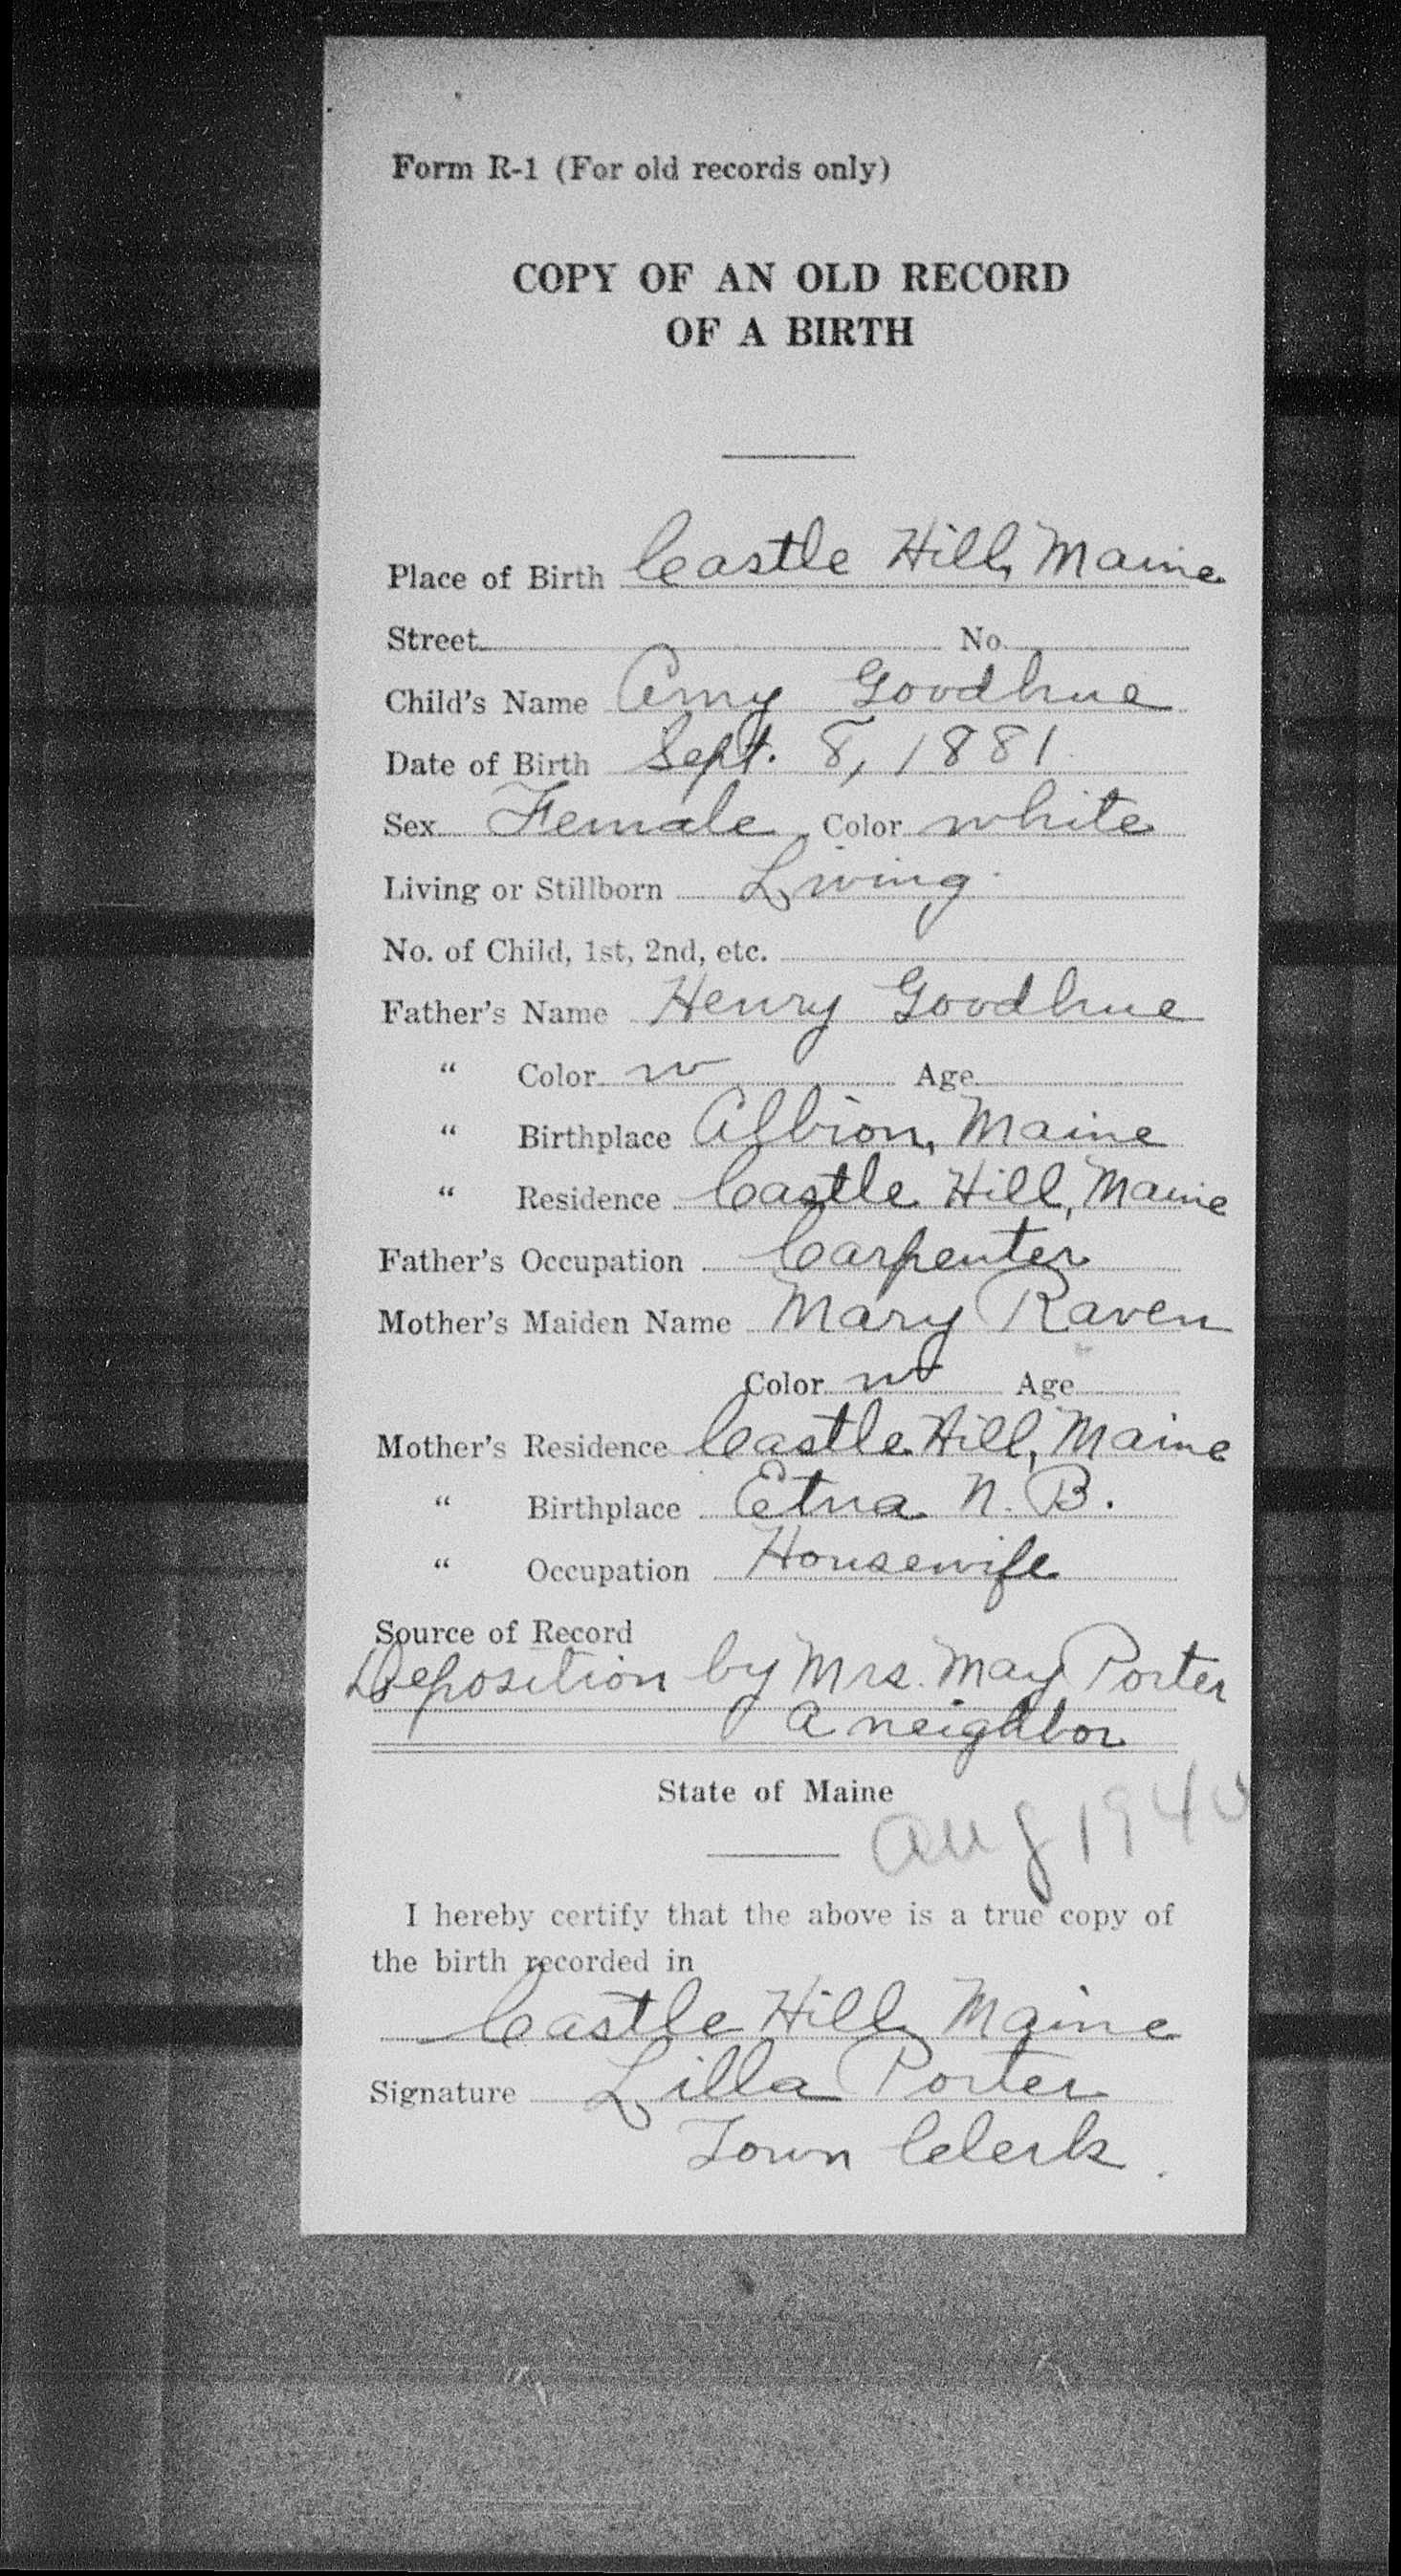 Form R-1 (For old records only)
COPY OF AN OLD RECORD
OF A BIRTH
Place of Birth Castle Hill, Maine
Street No.
Child's Name Amy Goodhue
Date of Birth Sept. 8, 1881
Sex Female Color white
Living or Stillborn Living
No. of Child, 1st, 2nd, etc.
Father's Name Henry Goodhue
" Color w Age
" Birthplace Albion, Maine
" Residence Castle Hill, Maine
Father's Occupation Carpenter
Mother's Maiden Name Mary Raven
Color w Age
Mother's Residence Castle Hill, Maine
" Birthplace Etna N. B.
" Occupation Housewife
Source of Record
Deposition by Mrs. May Porter
a neighbor
State of Maine
Aug 1940
I hereby certify that the above is a true copy of
the birth recorded in
Castle Hill, Maine
Signature Lilla Porter
Town Clerk.